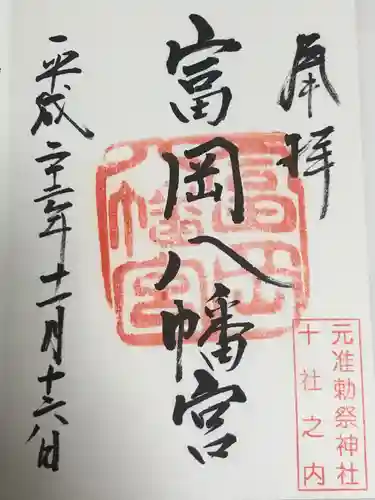 奉拝
富岡八幡宮
富岡八幡宮
元准勅祭神社
十社之内
平成二十六年十一月十六日